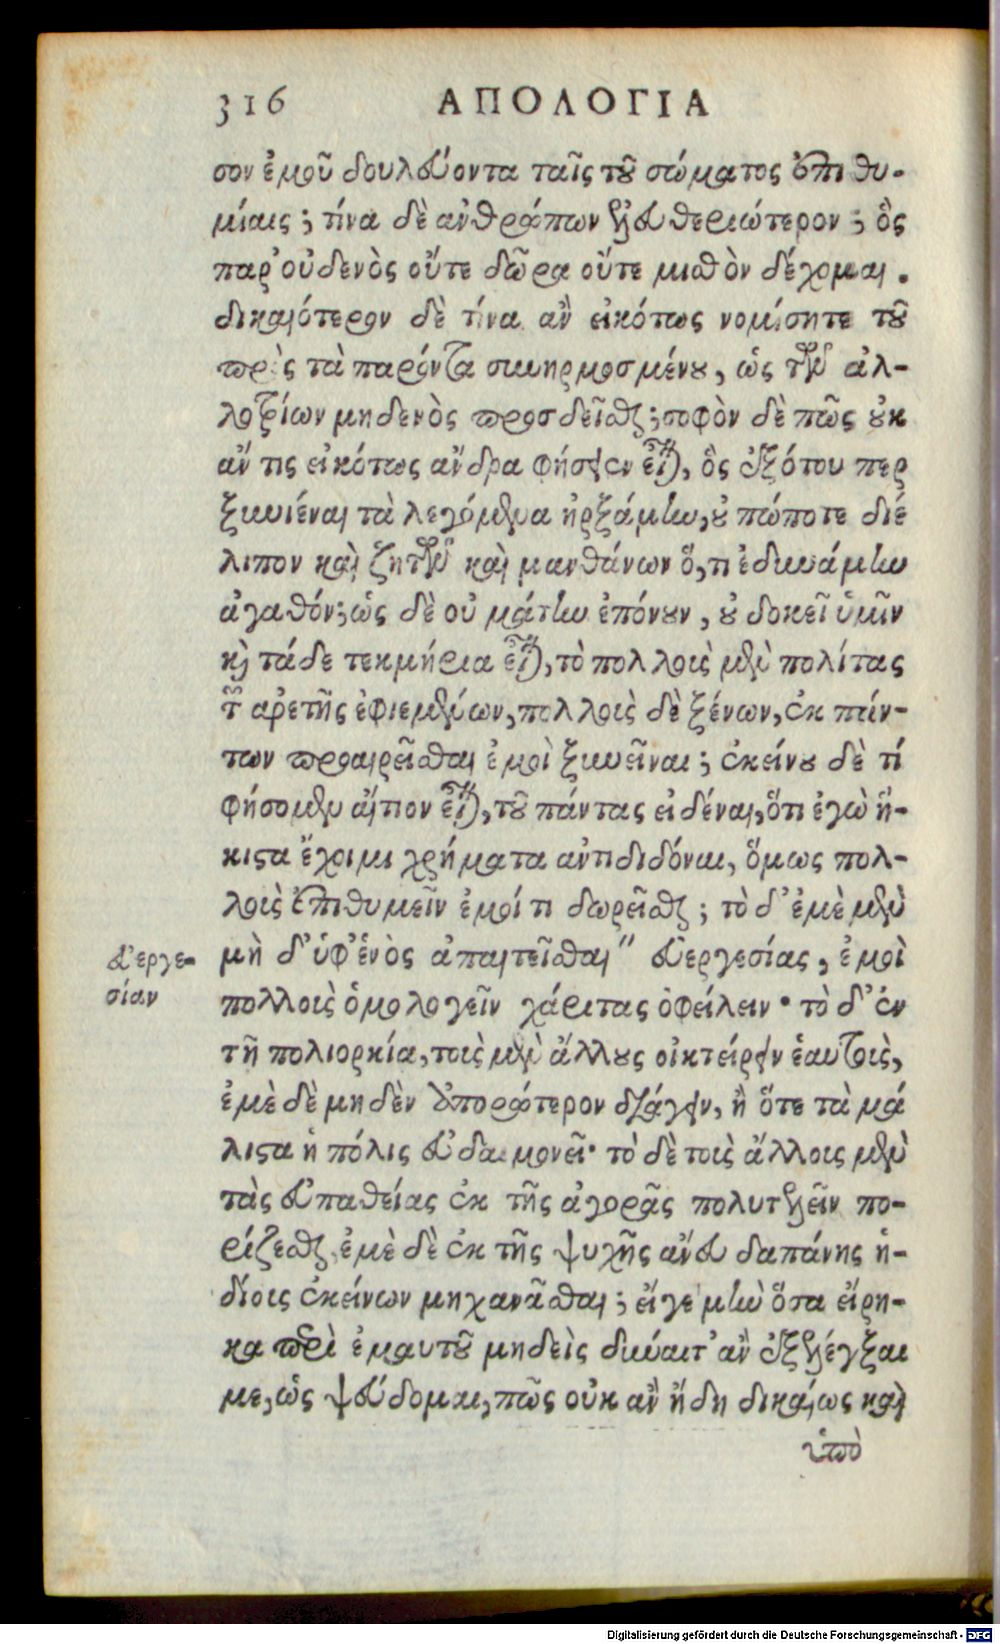 316 ΑΠΟΛΟΓΙΑ
σον ἐμοῦ δουλεύοντα ταῖς τοῦ σώματος ἐπιθυ-
μίαις; τίνα δὲ ἀνθρώπων ἐλευθεριώτερον; ὃς
παρ' οὐδενὸς οὔτε δῶρα οὔτε μισθὸν δέχομαι.
δικαιότερον δὲ τίνα ἂν εἰκότως νομίσητε τοῦ
πρὸς τὰ παρόντα συνηρμοσμένου, ὡς τῶν ἀλ-
λοτρίων μηδενὸς προσδεῖσθαι; σοφὸν δὲ πῶς οὐκ
ἄν τις εἰκότως ἄνδρα φήσειεν εἶναι, ὃς ἐξότου περ
ξυνιέναι τὰ λεγόμενα ἠρξάμην, οὐ πώποτε διέ
λιπον καὶ ζητῶν καὶ μανθάνων ὅ,τι ἐδυνάμην
ἀγαθόν; ὡς δὲ οὐ μάτην ἐπόνουν, οὐ δοκεῖ ὑμῖν
καὶ τάδε τεκμήρια εἶναι, τὸ πολλοὺς μὲν πολίτας
τῆς ἀρετῆς ἐφιεμένων, πολλοὺς δὲ ξένων, ἐκ πάν-
των προαιρεῖσθαι ἐμοὶ ξυνεῖναι; ἐκείνου δὲ τί
φήσομεν αἴτιον εἶναι, τοῦ πάντας εἰδέναι, ὅτι ἐγὼ ἥ-
κιστα ἔχοιμι χρήματα ἀντιδιδόναι, ὅμως πολ-
λοὺς ἐπιθυμεῖν ἐμοί τι δωρεῖσθαι; τὸ δ' ἐμὲ μὲν
μὴ δ' ὑφ' ἑνὸς ἀπαιτεῖσθαι" εὐεργεσίας, ἐμοὶ
εὐεργε-
σίαν
πολλοὺς ὁμολογεῖν χάριτας ὀφείλειν· τὸ δ' ἐν
τῇ πολιορκίᾳ, τοὺς μὲν ἄλλους οἰκτείρειν ἑαυτοὺς,
ἐμὲ δὲ μηδὲν ἀπορώτερον διάγειν, ἢ ὅτε τὰ μά
λιστα ἡ πόλις εὐδαιμονεῖ· τὸ δὲ τοὺς ἄλλους μὲν
τὰς εὐπαθείας ἐκ τῆς ἀγορᾶς πολυτελεῖν πο-
ρίζεσθαι, ἐμὲ δὲ ἐκ τῆς ψυχῆς ἄνευ δαπάνης ἡ-
δίους ἐκείνων μηχανᾶσθαι; εἴγε μὴν ὅσα εἴρη-
κα περὶ ἐμαυτοῦ μηδεὶς δύναιτ' ἂν ἐξελέγξαι
με, ὡς ψεύδομαι, πῶς οὐκ ἂν ἤδη δικαίως καὶ
ὑπὸ
Digitalisierung gefördert durch die Deutsche Forschungsgemeinschaft - DFG